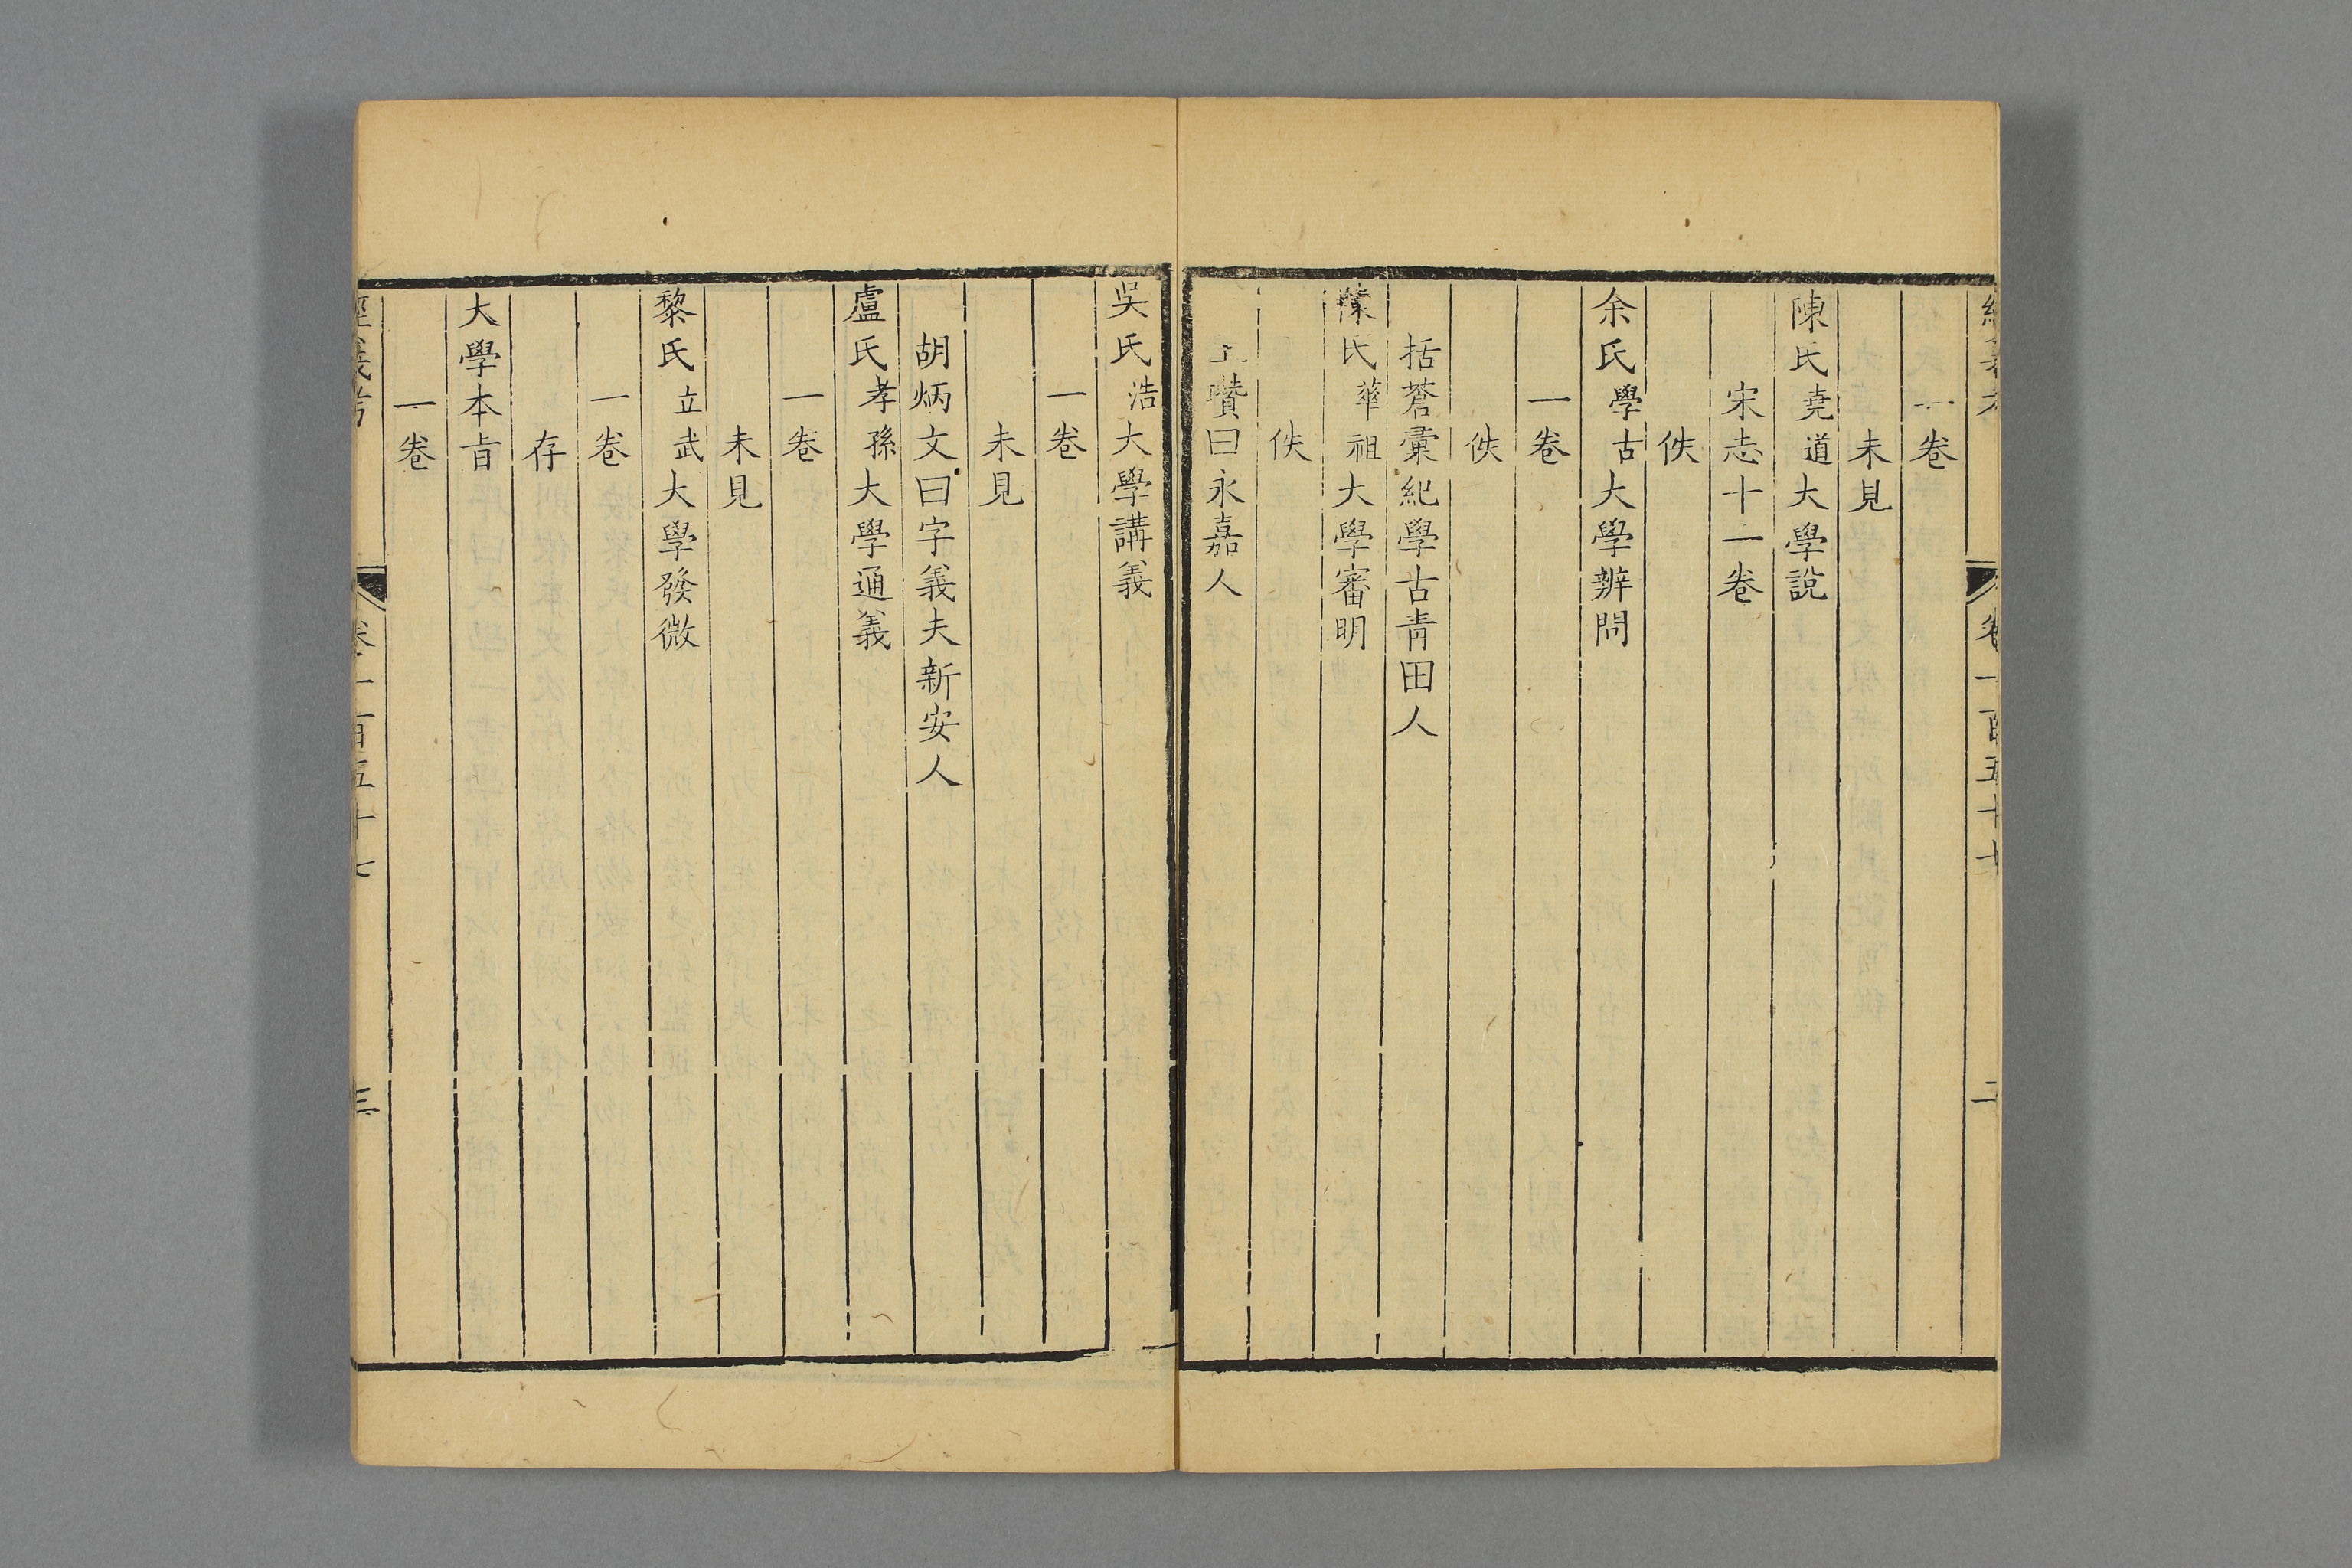 一卷
未見
陳氏堯道大學說
宋志十一卷
佚
余氏學古大學辨問
一卷
佚
括蒼彙紀學古青田人
氏華祖大學審明
佚
瓚曰永嘉人
吳氏浩大學講義
一卷
未見
胡炳文曰字義夫新安人
盧氏孝孫大學通義
一卷
未見
黎氏立武大學發微
一卷
存
大學本旨
一卷
經義考 卷一百五十七 三